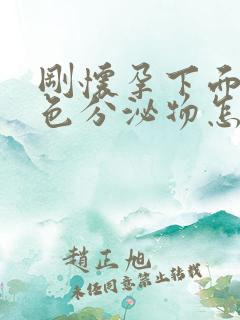 剛懷孕下面
色分泌物怎
趙正旭
未經同意禁止轉載